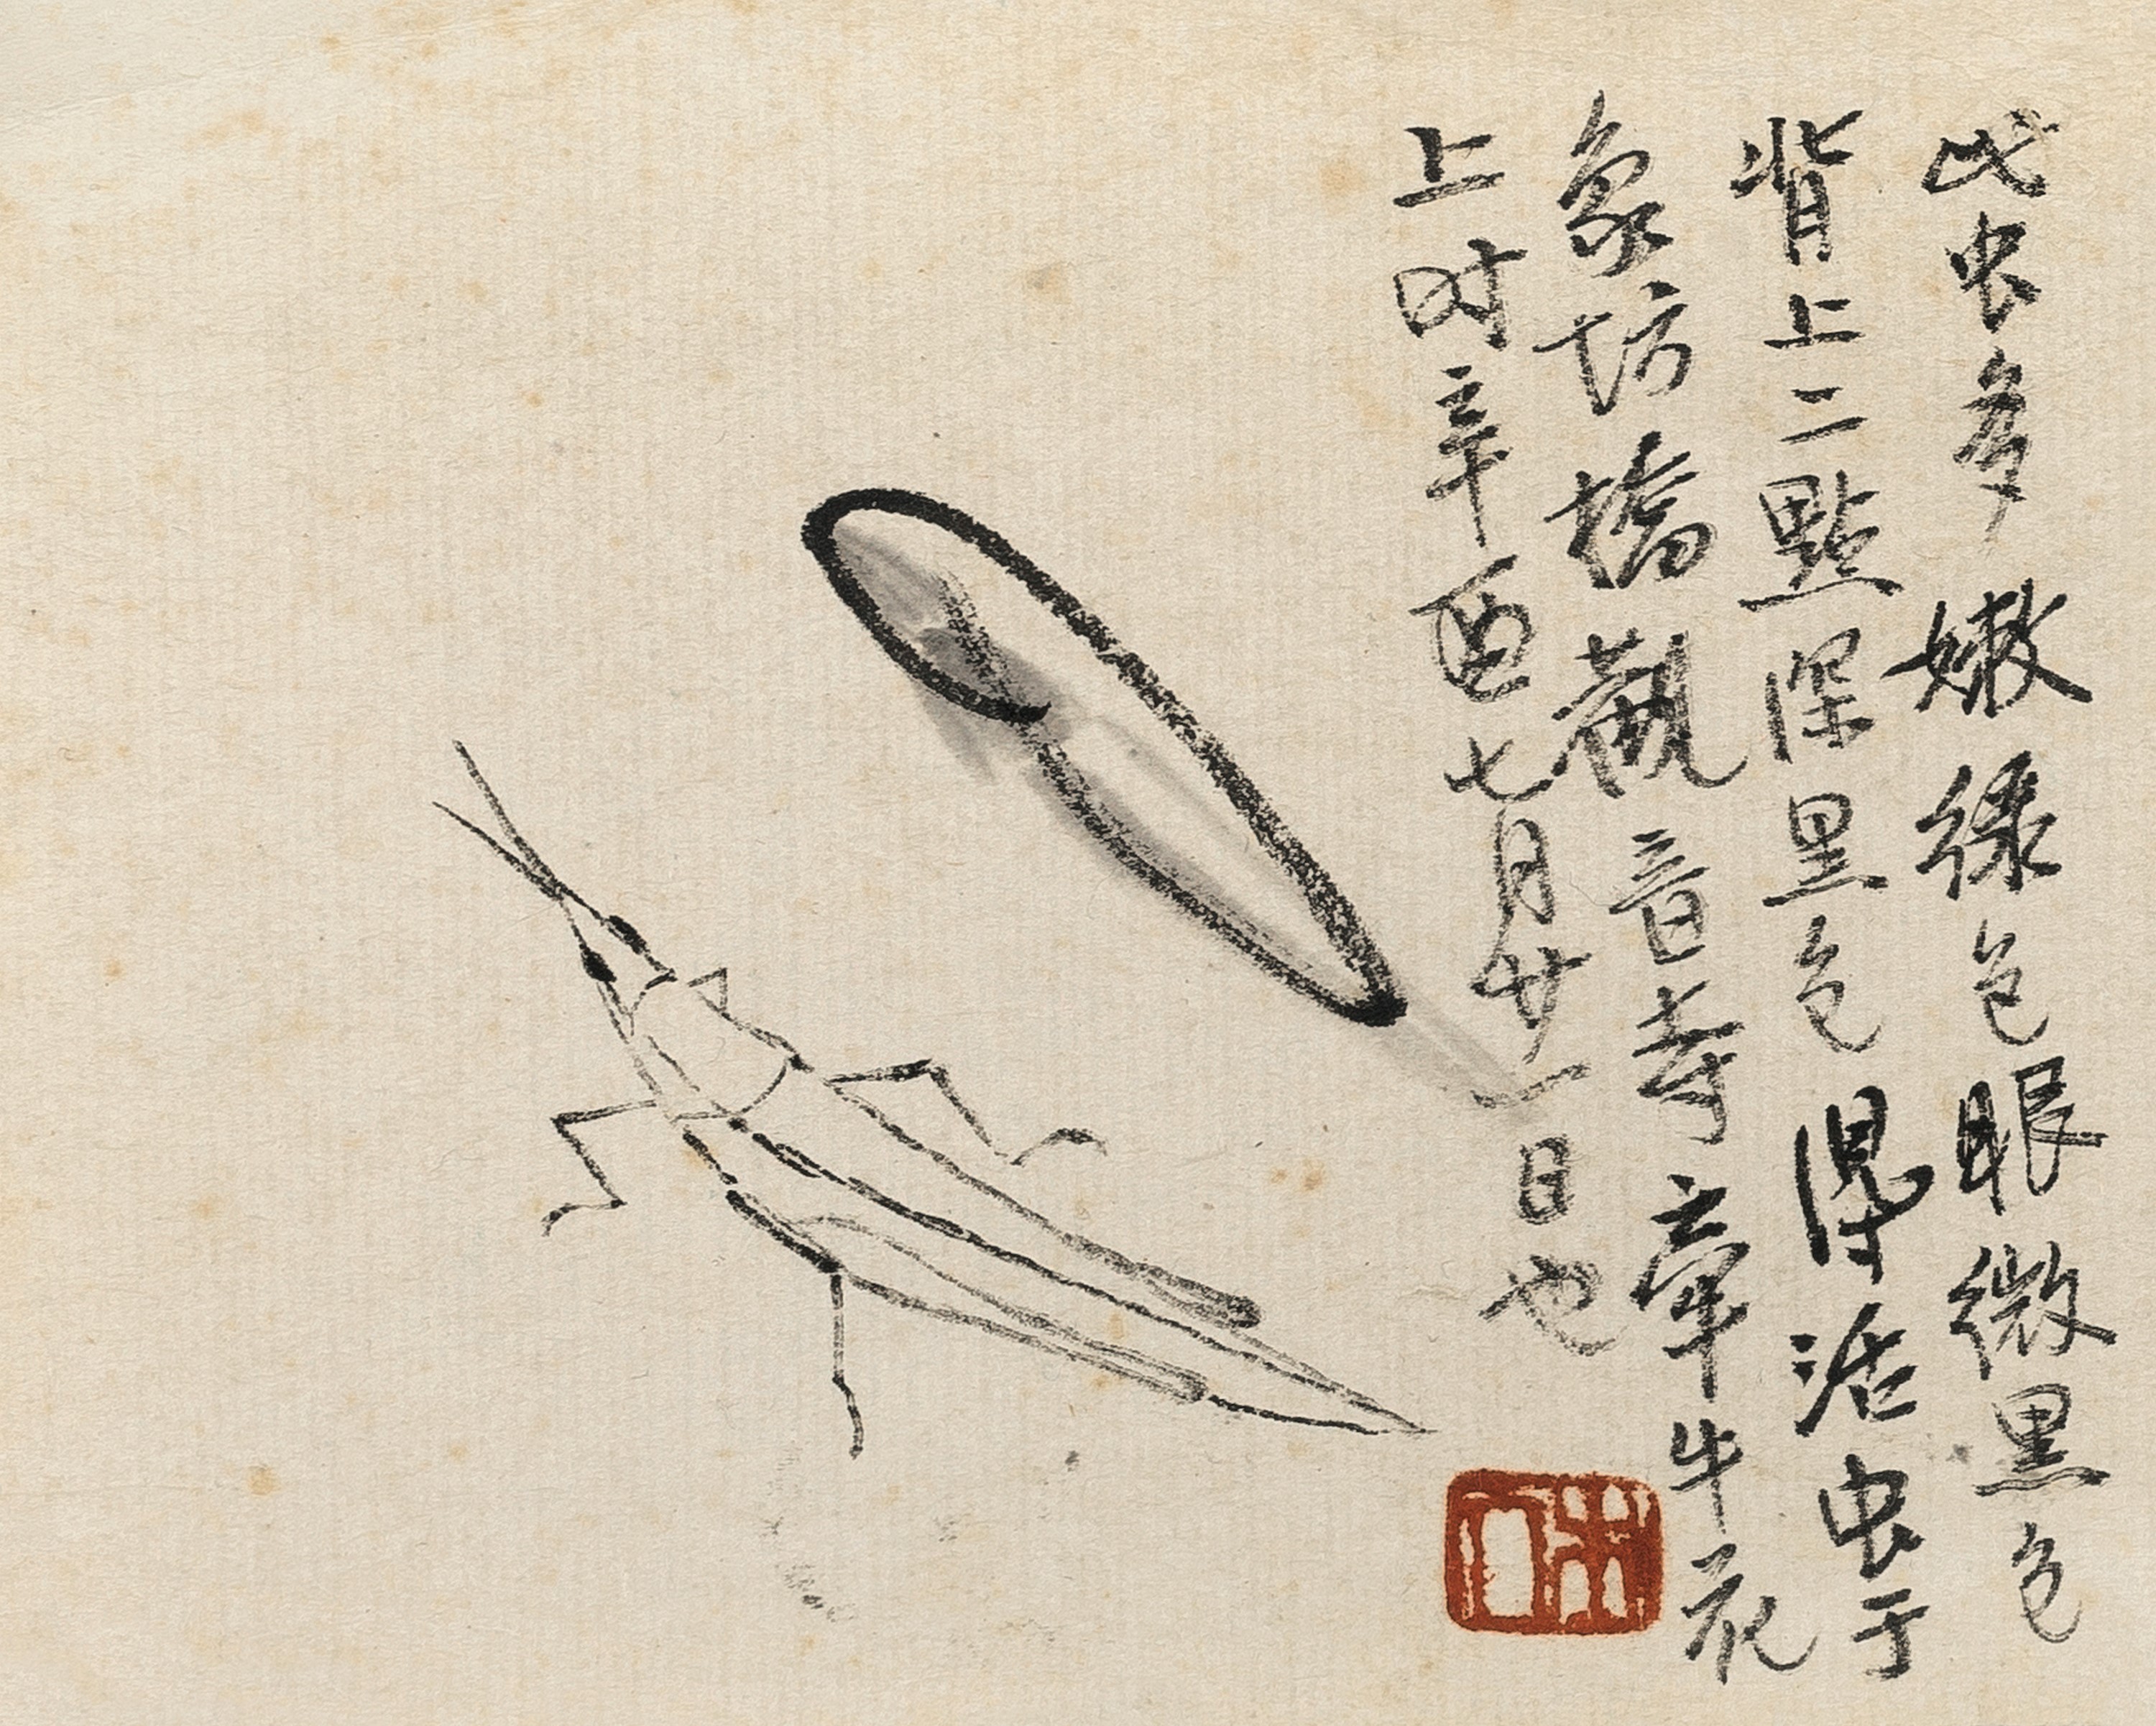 此虫多嫩綠色眼微黑色
背上二點深黑色得活虫于
象坊橋觀音寺牽牛花
上时辛酉七月廿一日也
木人